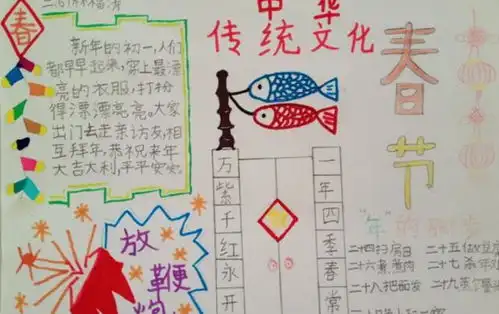 春
新年的初一,人们
都早早起来,穿上最漂
亮的衣服,打扮
得漂漂亮亮。大家
出门去走亲访友,相
互拜年,恭祝来年
大吉大利,平平安安。
中华
传统文化
春节
万紫千红永开
一年四季春常
放鞭炮
"年"的
二十四扫房日
二十五
二十六煮煮肉
二十七杀年
二十八把面发
二十九蒸